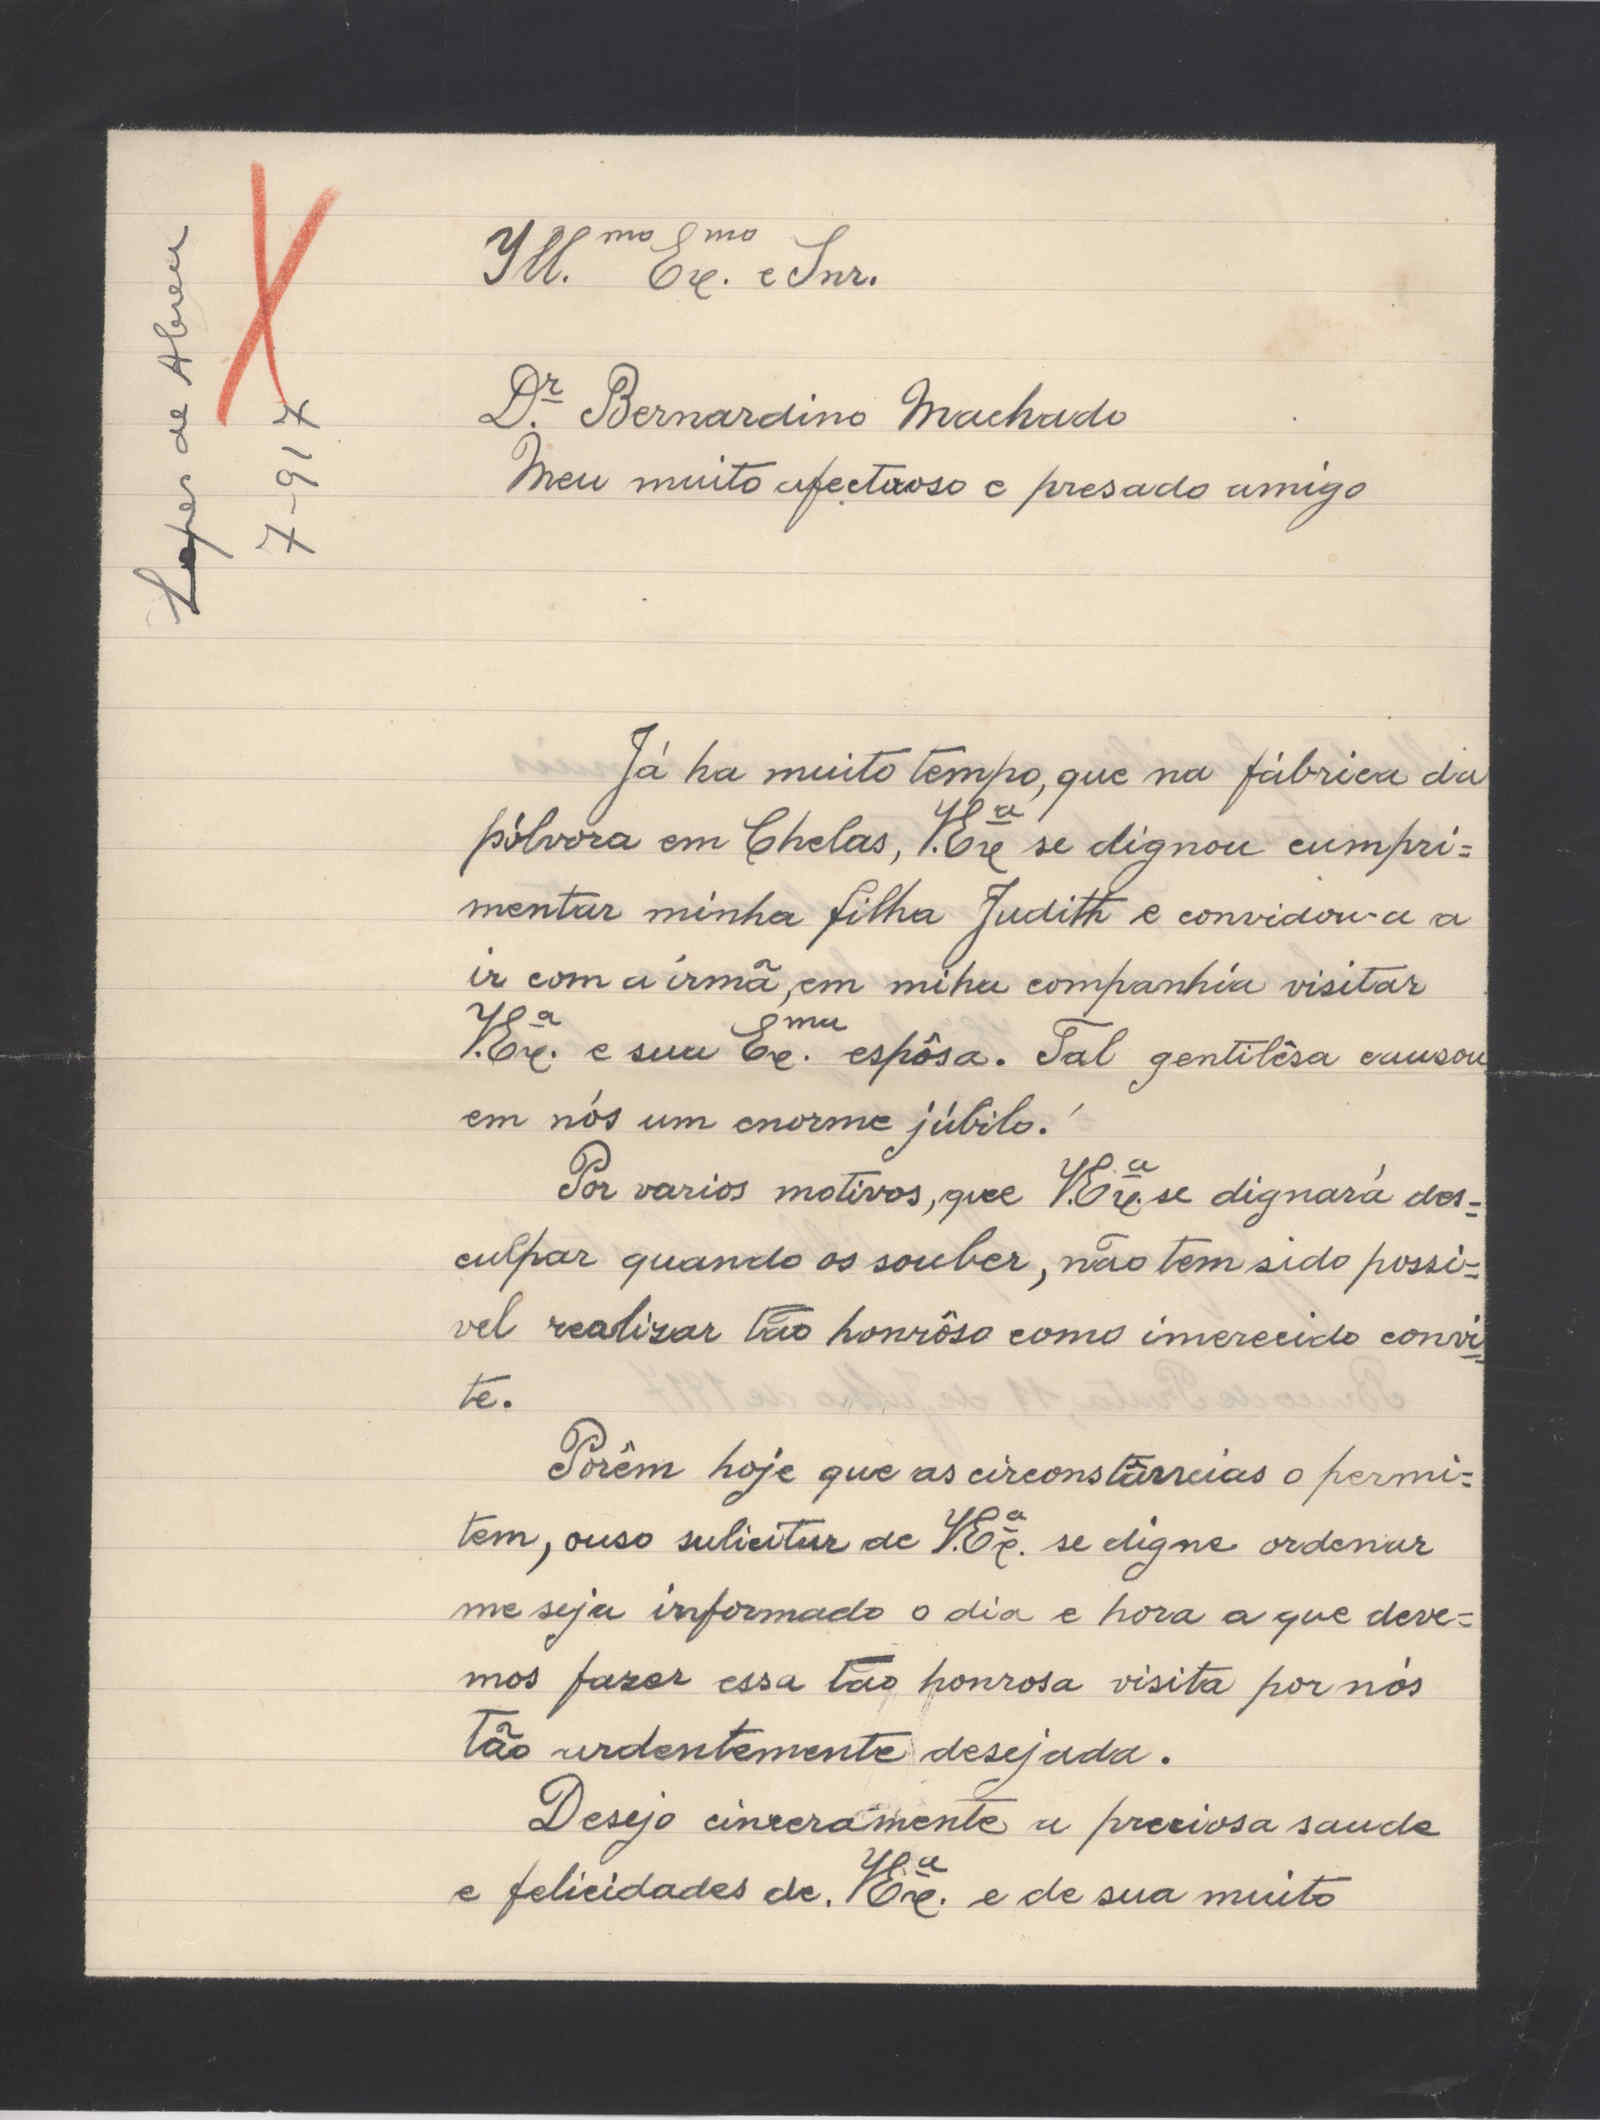 Lopes de Abreu
7-917
Ill.mo Ex.mo e Snr.
Dr. Bernardino Machado
Meu muito afectuoso e presado amigo
Já ha muito tempo, que na fábrica da
pólvora em Chelas, V. Exª se dignou cumpri=
mentar minha filha Judith e convidou-a a
ir com a irmã, em miha companhia visitar
V. Ex.ª e sua Ex.ma espôsa. Tal gentilêsa causou
em nós um enorme júbilo!
Por varios motivos, que V. Ex.ª se dignará des=
culpar quando os souber, não tem sido possi=
vel realizar tão honrôso como imerecido convi=
te.
Porêm hoje que as circonstâncias o permi=
tem, ouso sulicitar de V. Ex.ª se digne ordenar
me seja informado o dia e hora a que deve=
mos fazer essa tão honrosa visita por nós
tão ardentemente desejada.
Desejo cinceramente a preciosa saude
e felicidades de. V. Ex.ª e de sua muito